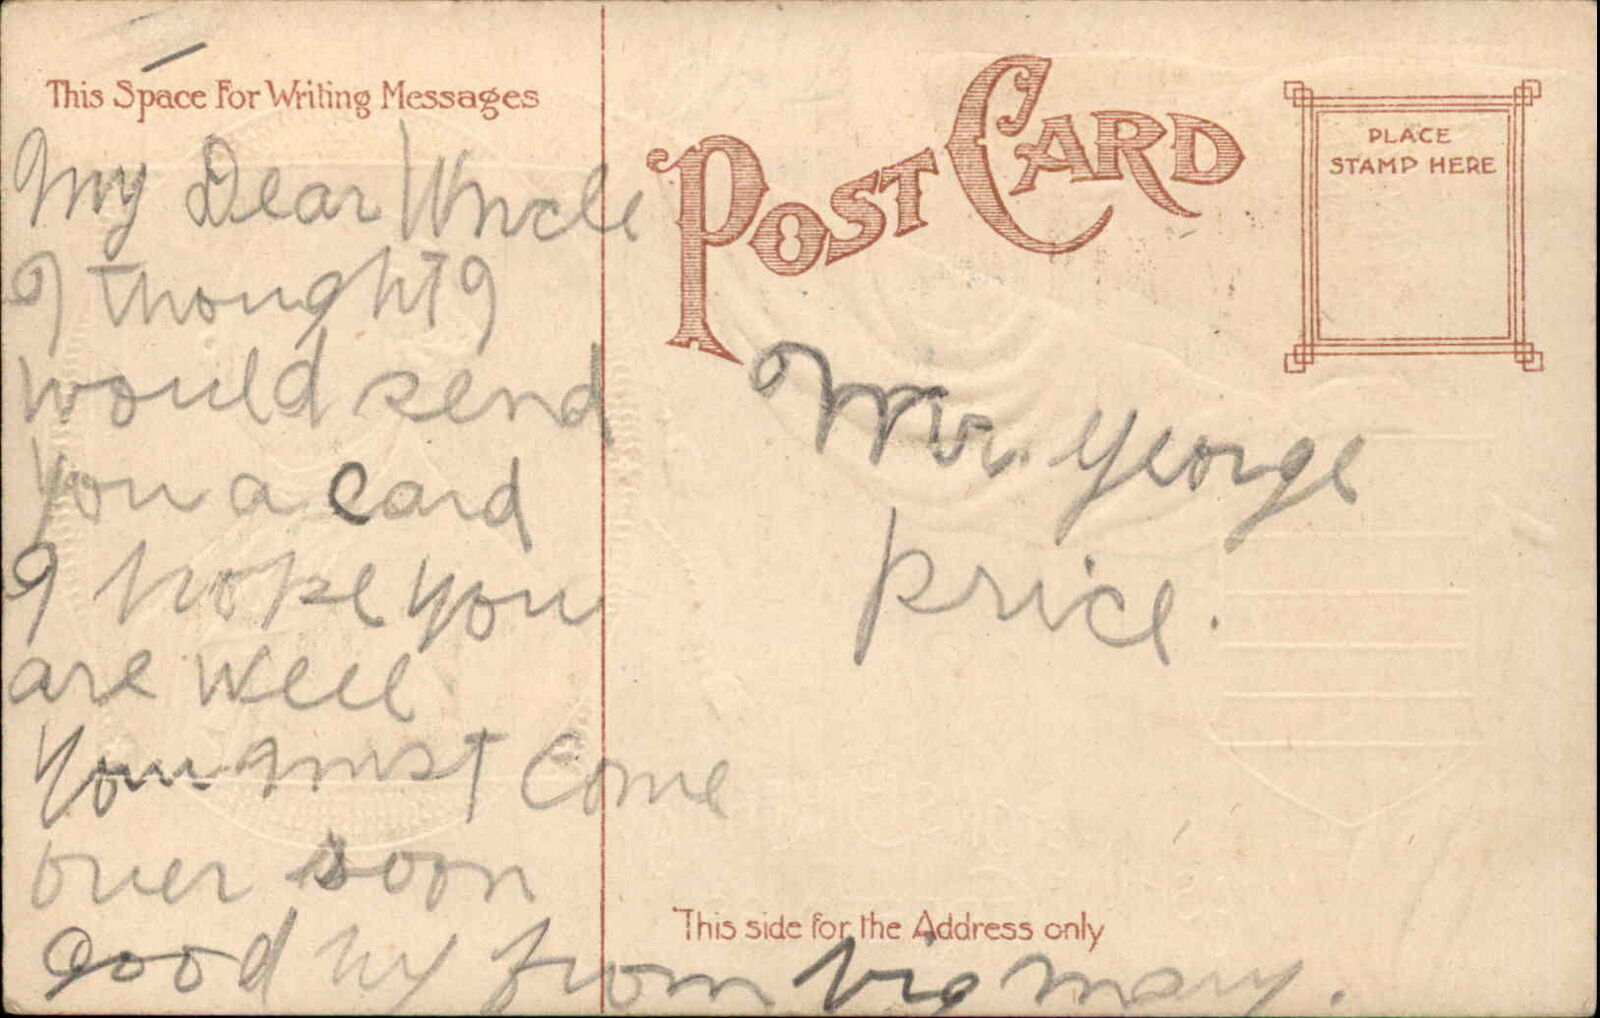 This Space For Writing Messages
My Dear Uncle
I thought I
would send
you a card
I hope you
are well
You must Come
over soon
good by from mary.
POST CARD
PLACE
STAMP HERE
Mr. George
price.
This side for the Address only